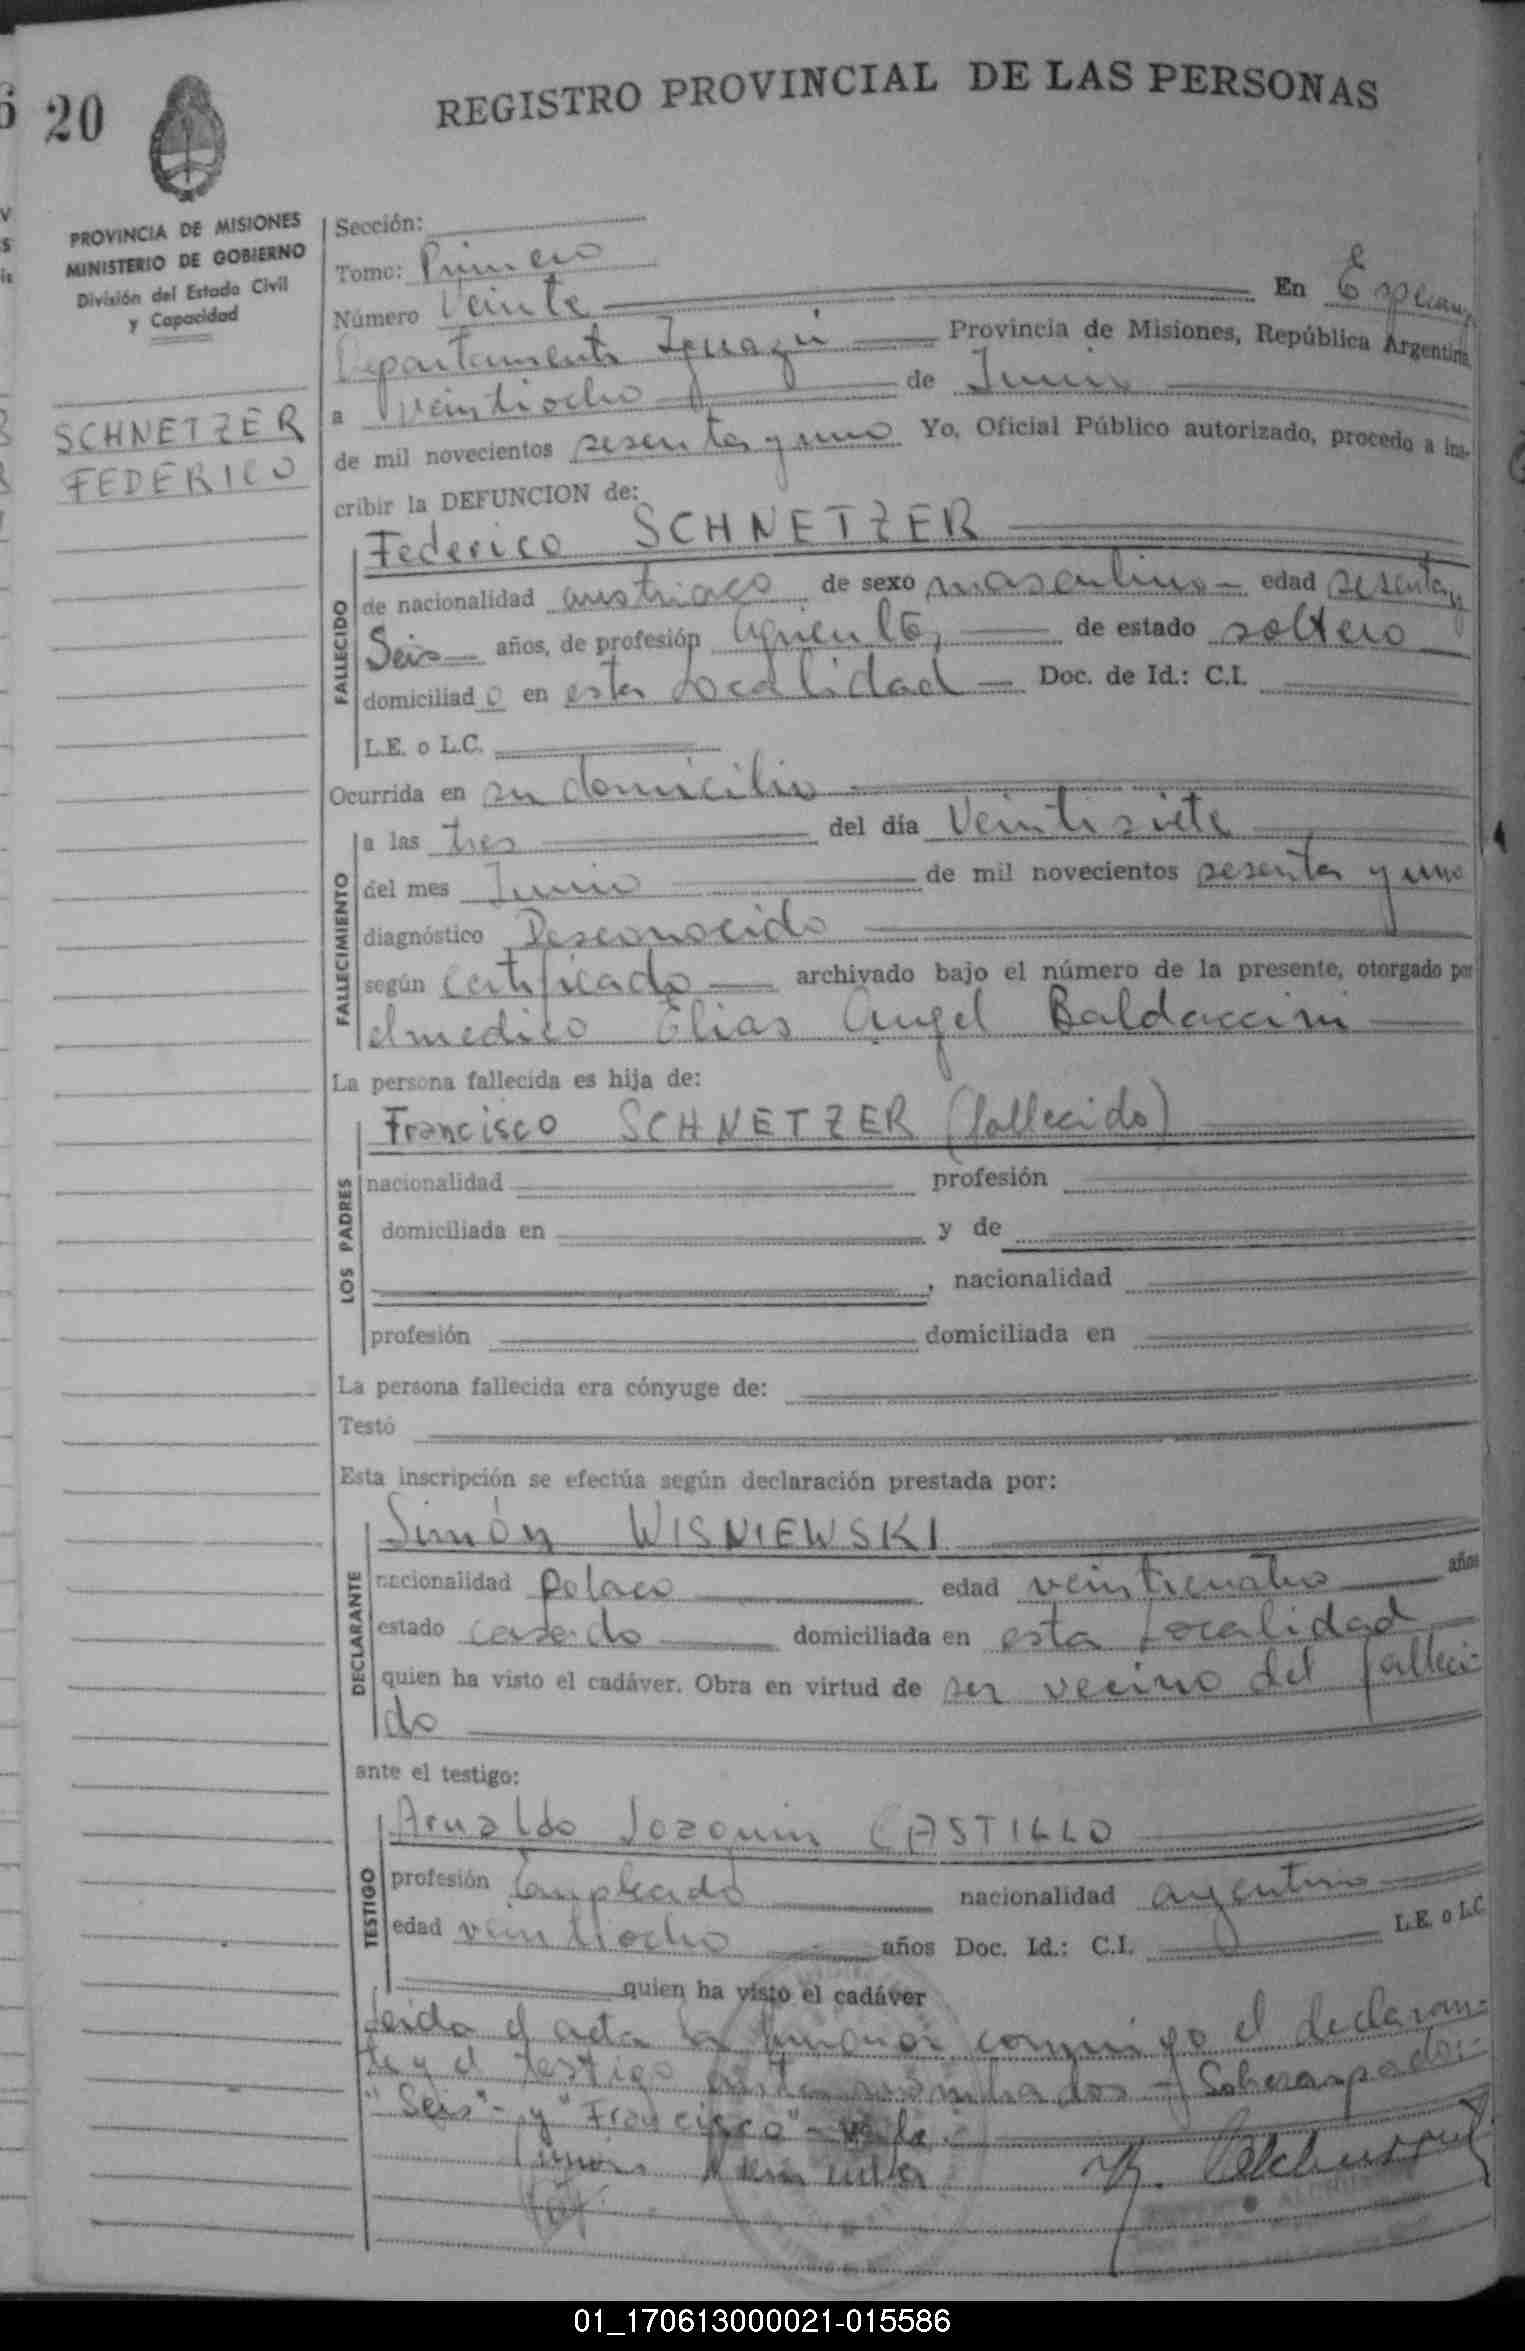 20
REGISTRO PROVINCIAL DE LAS PERSONAS
PROVINCIA DE MISIONES
MINISTERIO DE GOBIERNO
División del Estado Civil
y Capacidad
SCHNETZER
FEDERICO
Sección:
Tomo: Primero
Número Veinte En Esperanza
Departamento Iguazú Provincia de Misiones, República Argentina,
a veintiocho de Junio
de mil novecientos sesenta y uno Yo, Oficial Público autorizado, procedo a ins-
cribir la DEFUNCION de:
FALLECIDO
Federico SCHNETZER
de nacionalidad austriaco de sexo masculino edad sesenta y
Seis años, de profesión agricultor, de estado soltero
domiciliado en esta Localidad Doc. de Id.: C.I.
L.E. o L.C.
Ocurrida en su domicilio
FALLECIMIENTO
a las tres del día Veintisiete
del mes Junio de mil novecientos sesenta y uno
diagnóstico Desconocido
según certificado archivado bajo el número de la presente, otorgado por
el medico Elias Angel Baldaccini
La persona fallecida es hija de:
LOS PADRES
Francisco SCHNETZER (fallecido)
nacionalidad profesión
domiciliada en y de
, nacionalidad
profesión domiciliada en
La persona fallecida era cónyuge de:
Testó
Esta inscripción se efectúa según declaración prestada por:
DECLARANTE
Simón WISNIEWSKI
nacionalidad polaco edad veinticuatro años
estado casado domiciliada en esta Localidad
quien ha visto el cadáver. Obra en virtud de ser vecino del falleci-
do
ante el testigo:
TESTIGO
Arnaldo Joaquin CASTILLO
profesión Empleado nacionalidad argentino
edad veintiocho años Doc. Id.: C.I. L.E. o L.C
quien ha visto el cadáver
Leida el acta la firman conmigo el declaran-
te y el testigo antes nombrados - Sobreraspado:-
"Seis"- y "Francisco"- Vale
01_170613000021-015586